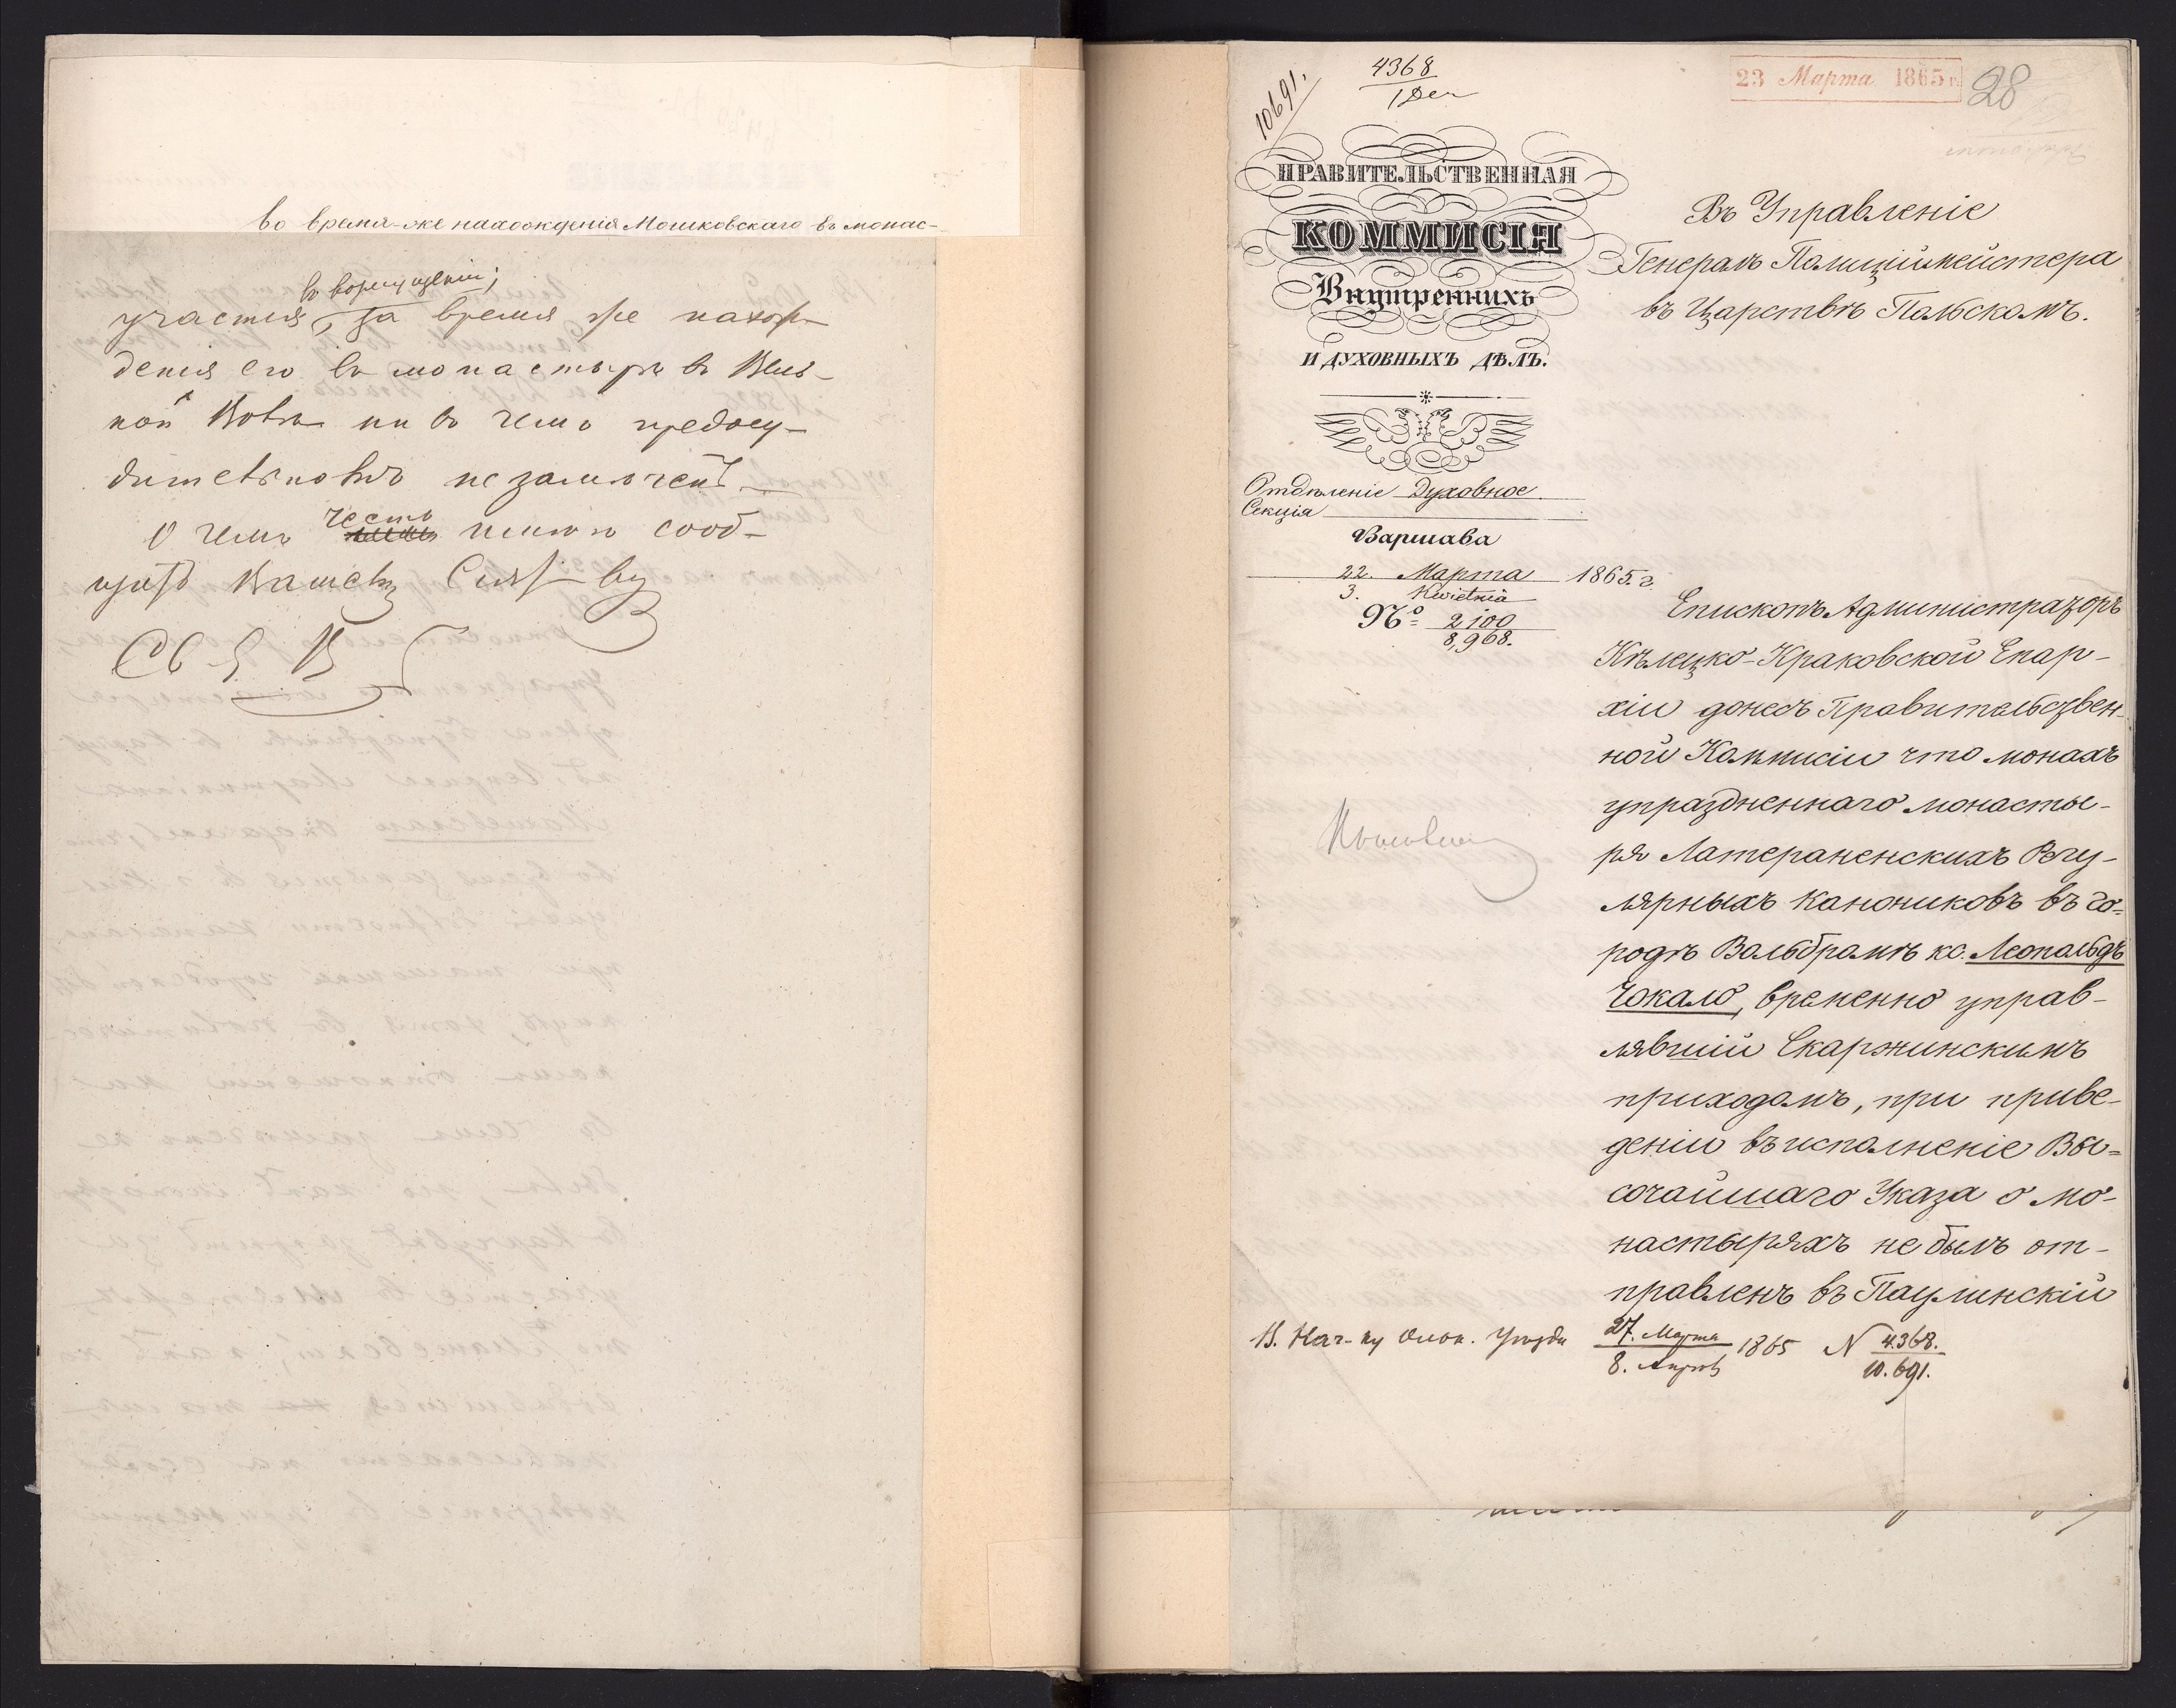 во время-же нахожденія Мошковскаго въ монас-
участія, за время же нахож-
денія его въ монастырѣ въ Вель-
кой Волѣ ни въ чемъ предосу-
дительномъ не замѣченъ
О чемъ честь имѣю сооб-
щить Вашему
4368
1 Дек
10691.
23 Марта 1865 г.
28
ПРАВИТЕЛЬСТВЕННАЯ
КОММИСІЯ
Внутреннихъ
И ДУХОВНЫХЪ ДѢЛЪ.
Отдѣленіе Духовное
Секція
Варшава
22. Марта 1865. г.
3. Kwietnia
№ 2100
8,968.
Въ Управленіе
Генералъ Полиціймейстера
въ Царствѣ Польскомъ.
Епископъ Администраторъ
Кѣлецко-Краковской Епар-
хіи донесъ Правительствен-
ной Коммисіи что монахъ
упраздненнаго монасты-
ря Латераненскихъ Регу-
лярныхъ Канониковъ въ го-
родѣ Вольбромѣ кс. Леопольдъ
Чокало, временно управ-
лявшій Скаржинскимъ
приходомъ, при приве-
деніи въ исполненіе Вы-
сочайшаго Указа о мо-
настыряхъ не былъ от-
правленъ въ Паулинскій
В. Нач-ку Олок. Уѣзда 27. Марта 1865 N 4368.
8. Апрѣ 10.691.